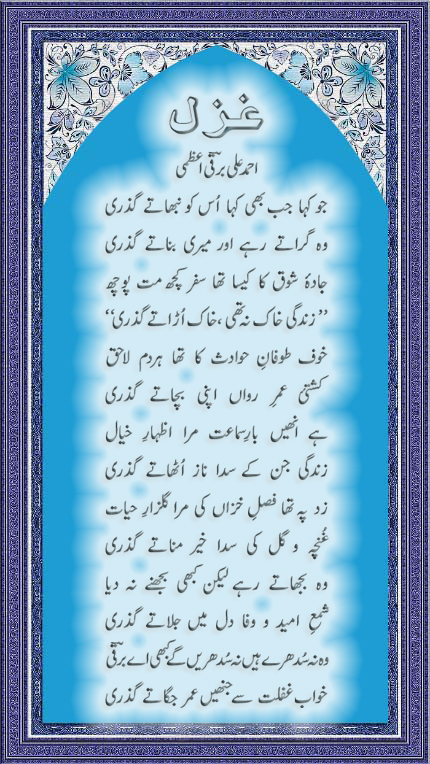 غزل
احمد علی برقیؔ اعظمی
جو کہا جب بھی کہا اُس کو نبھاتے گذری
وہ گراتے رہے اور میری بناتے گذری
جادۂ شوق کا کیسا تھا سفر کچھ مت پوچھ
’’زندگی خاک نہ تھی ، خاک اُڑاتے گذری‘‘
خوف طوفانِ حوادث کا تھا ہردم لاحق
کشتیٔ عمرِ رواں اپنی بچاتے گذری
ہے انھیں بارِسماعت مرا اظہارِ خیال
زندگی جن کے سدا ناز اُٹھاتے گذری
زد پہ تھا فصلِ خزاں کی مرا گلزارِ حیات
غُنچہ و گل کی سدا خیر مناتے گذری
وہ بجھاتے رہے لیکن کبھی بجھنے نہ دیا
شمعِ امید و وفا دل میں جلاتے گذری
وہ نہ سُدھرے ہیں نہ سُدھریں گے کبھی اے برقیؔ
خواب غفلت سے جنھیں عمر جگاتے گذری